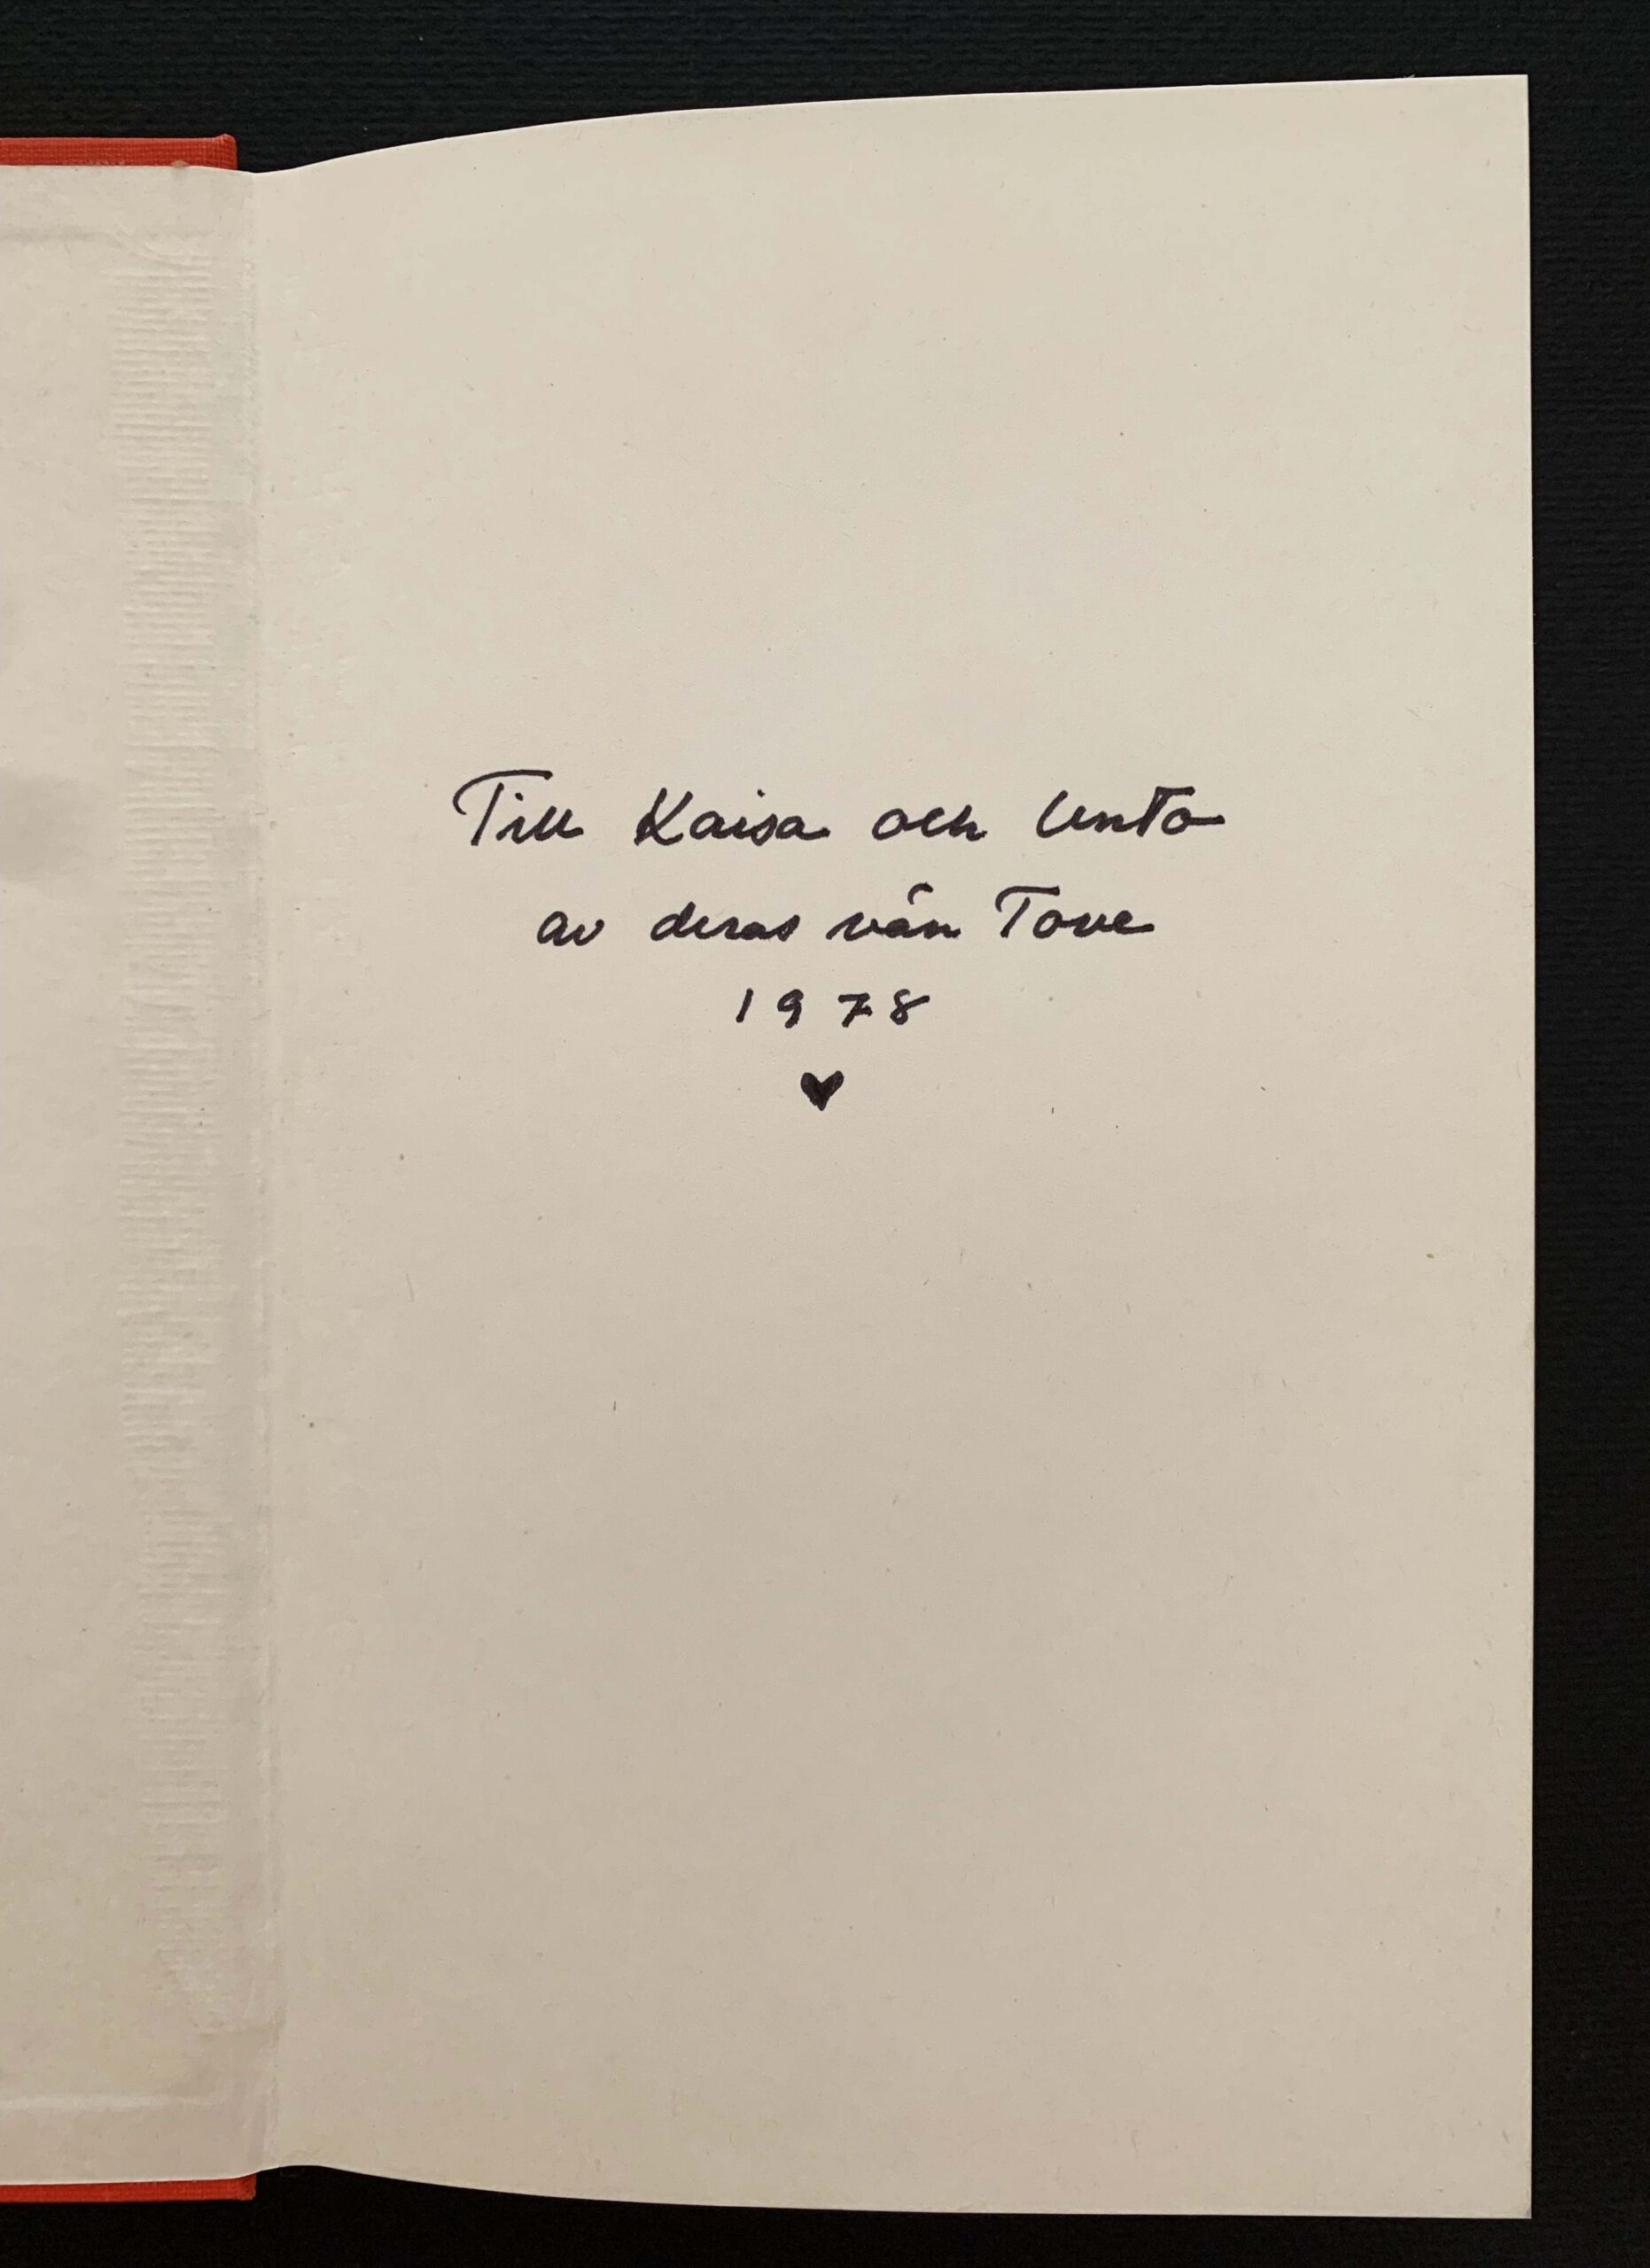 Till Kaisa och Unto
av deras vän Tove
1978
♥